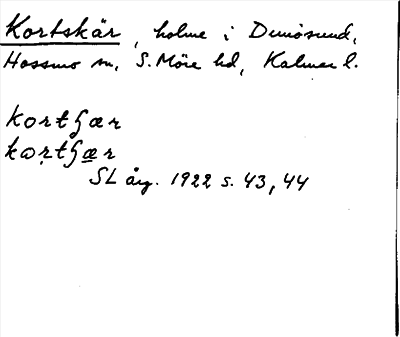 Kortskär, holme i Dunösund,
Hossmo sn, S. Möre hd, Kalmar l.
kortʃær
kort̩ʃær
SL årg. 1922 s. 43, 44